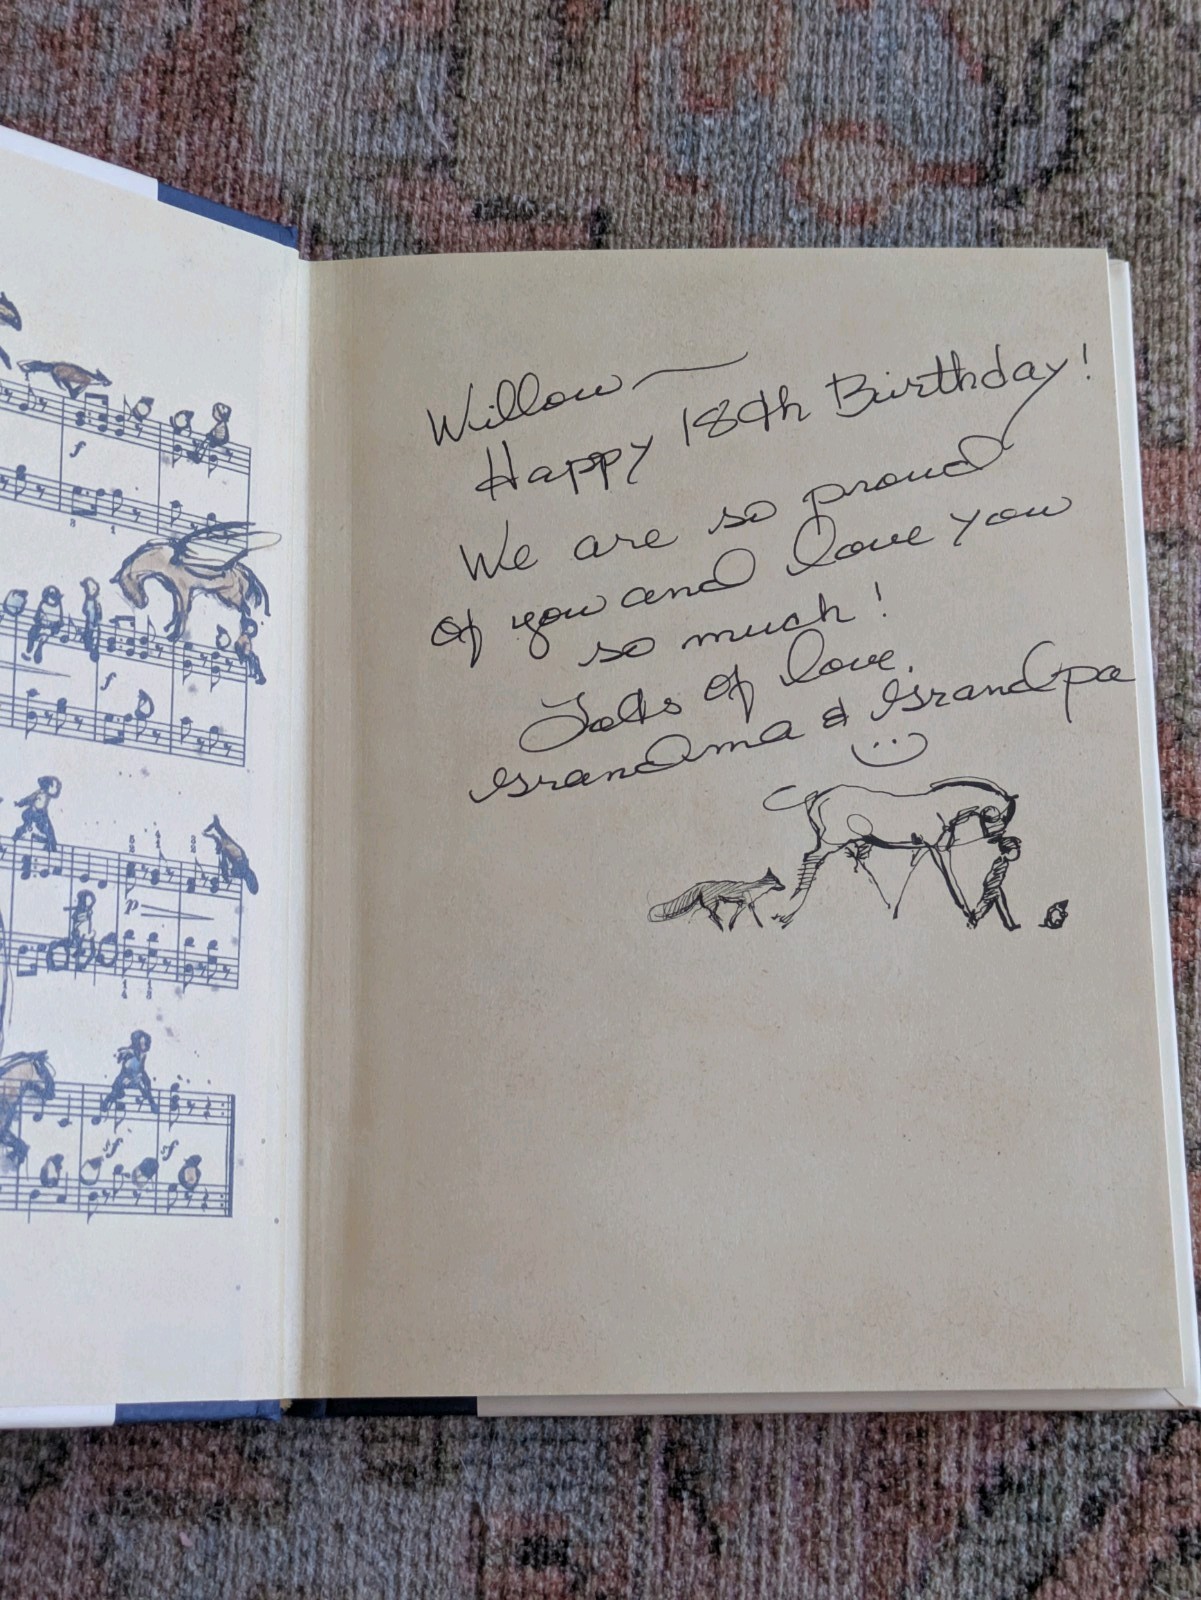 Willow —
Happy 18th Birthday!
We are so proud
of you and love you
so much!
Lots of love,
Grandma & Grandpa
f
f
p
sf
sf